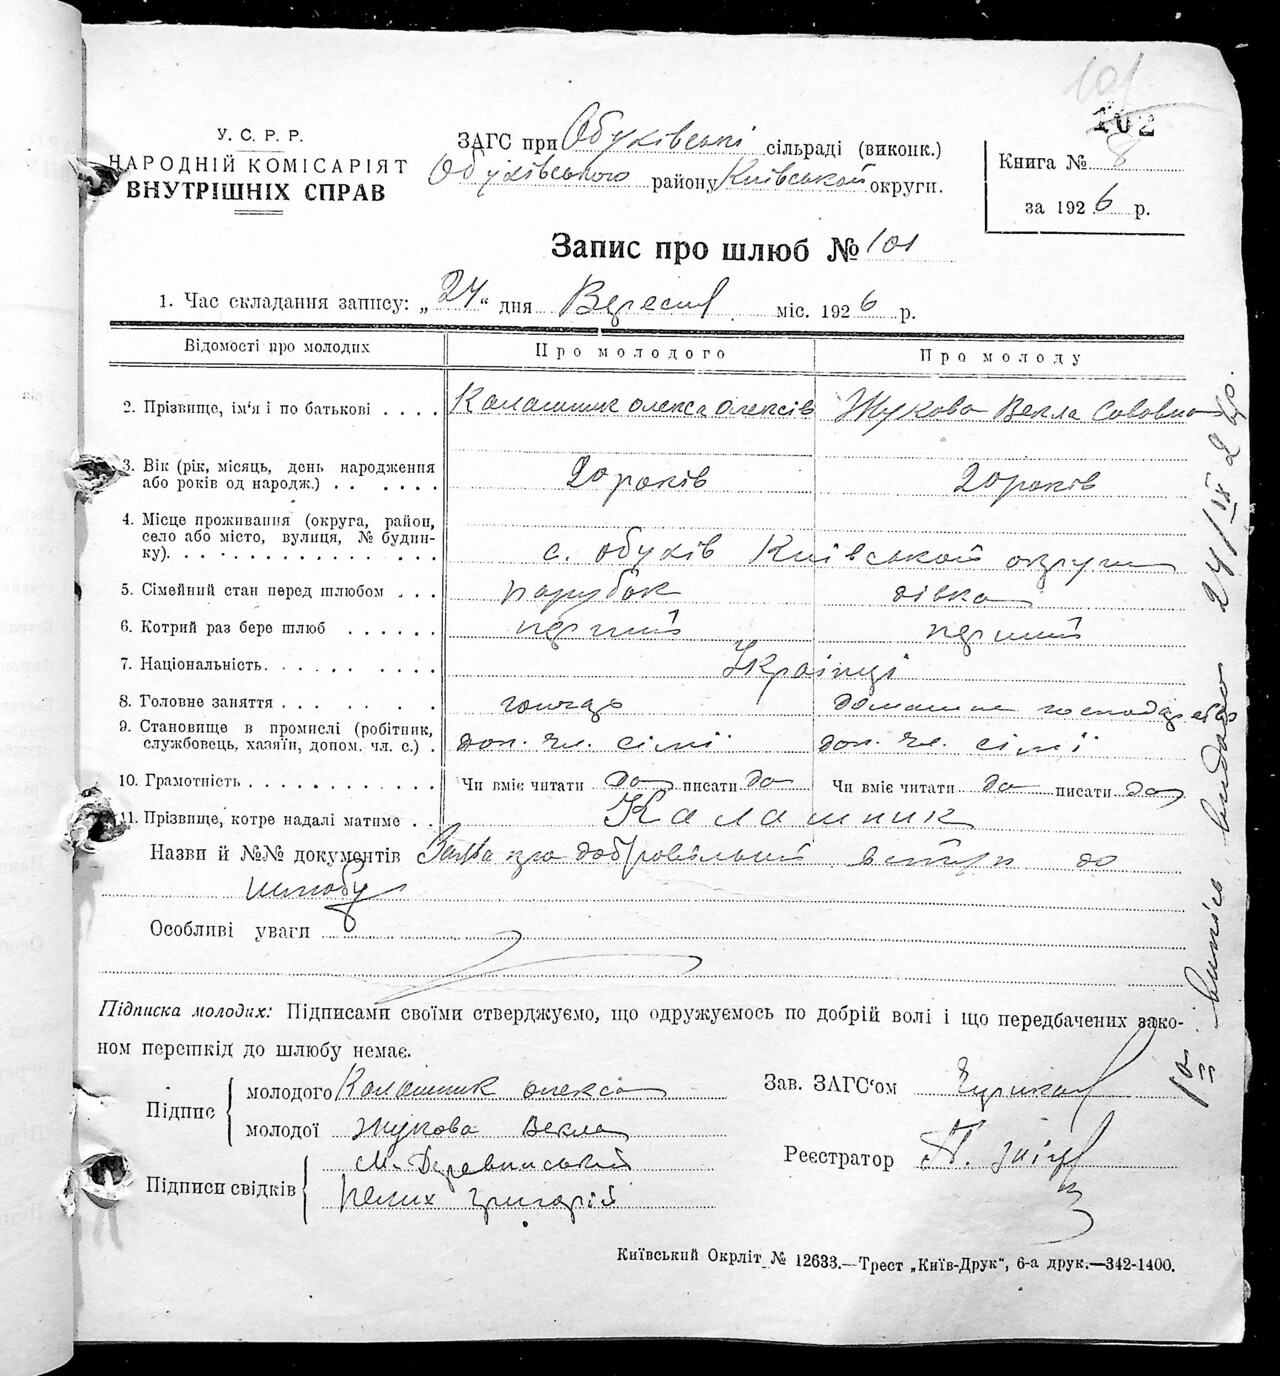 101
102
У. С. Р. Р.
НАРОДНІЙ КОМІСАРІЯТ
ВНУТРІШНІХ СПРАВ
ЗАГС при Обухівські сільраді (виконк.)
Обухівського району Київської округи.
Книга № 8
за 1926 р.
Запис про шлюб № 101
1. Час складання запису: „24“ дня Вересня міс. 1926 р.
Відомості про молодих Про молодого Про молоду
2. Прізвище, ім'я і по батькові . . . . Калашник Олекса Олексів Жукова Векла Савовна
3. Вік (рік, місяць, день народження
або років од народж.) . . . . . . 20 років 20 років
4. Місце проживання (округа, район,
село або місто, вулиця, № будин-
ку). . . . . . . . . . . . . . с. Обухів Київської округи
5. Сімейний стан перед шлюбом . . . парубок дівка
6. Котрий раз бере шлюб . . . . . . перший перший
7. Національність. . . . . . . . . Українці
8. Головне заняття . . . . . . . . домашнє господарство
9. Становище в промислі (робітник,
службовець, хазяїн, допом. чл. с.) . доп. чл. сімї доп. чл. сімї
10. Грамотність . . . . . . . . . . . Чи вміє читати да писати да Чи вміє читати да писати да
11. Прізвище, котре надалі матиме . . Калашник
Назви й №№ документів Заява про добровільний вступ до
шлюбу
Особливі уваги
Підписка молодих: Підписами своїми стверджуємо, що одружуємось по добрій волі і що передбачених зако-
ном перешкід до шлюбу немає.
Підпис молодого Калашник Олекса
молодої Жукова Векла
Підписи свідків М. Деревинський
Григорій
Зав. ЗАГС'ом
Реєстратор
Київський Окрліт № 12633.—Трест „Київ-Друк“, 6-а друк.—342-1400.
випись видано 24/IX 26 р.